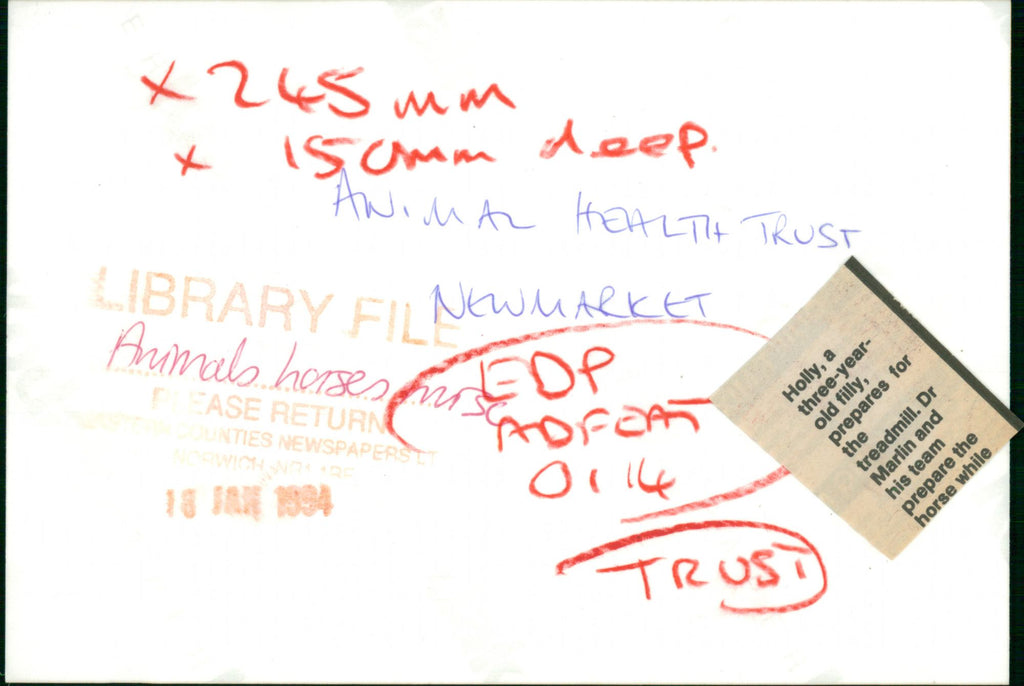 x 245 mm
x 150mm deep.
ANIMAL HEALTH TRUST
NEWMARKET
LIBRARY FILE
Animals horses
PLEASE RETURN
COUNTIES NEWSPAPERS LT
NORWICH NR1 1RE
18 JAN 1994
EDP
ADFEAT
0114
TRUST
Holly, a
three-year-
old filly,
prepares for
the
treadmill. Dr
Marlin and
his team
prepare the
horse while